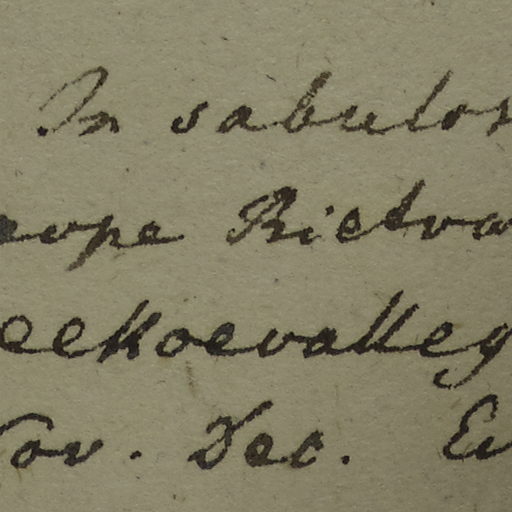 In sabulos
eope Rietva
eekoevalley
Nov. Dec. E